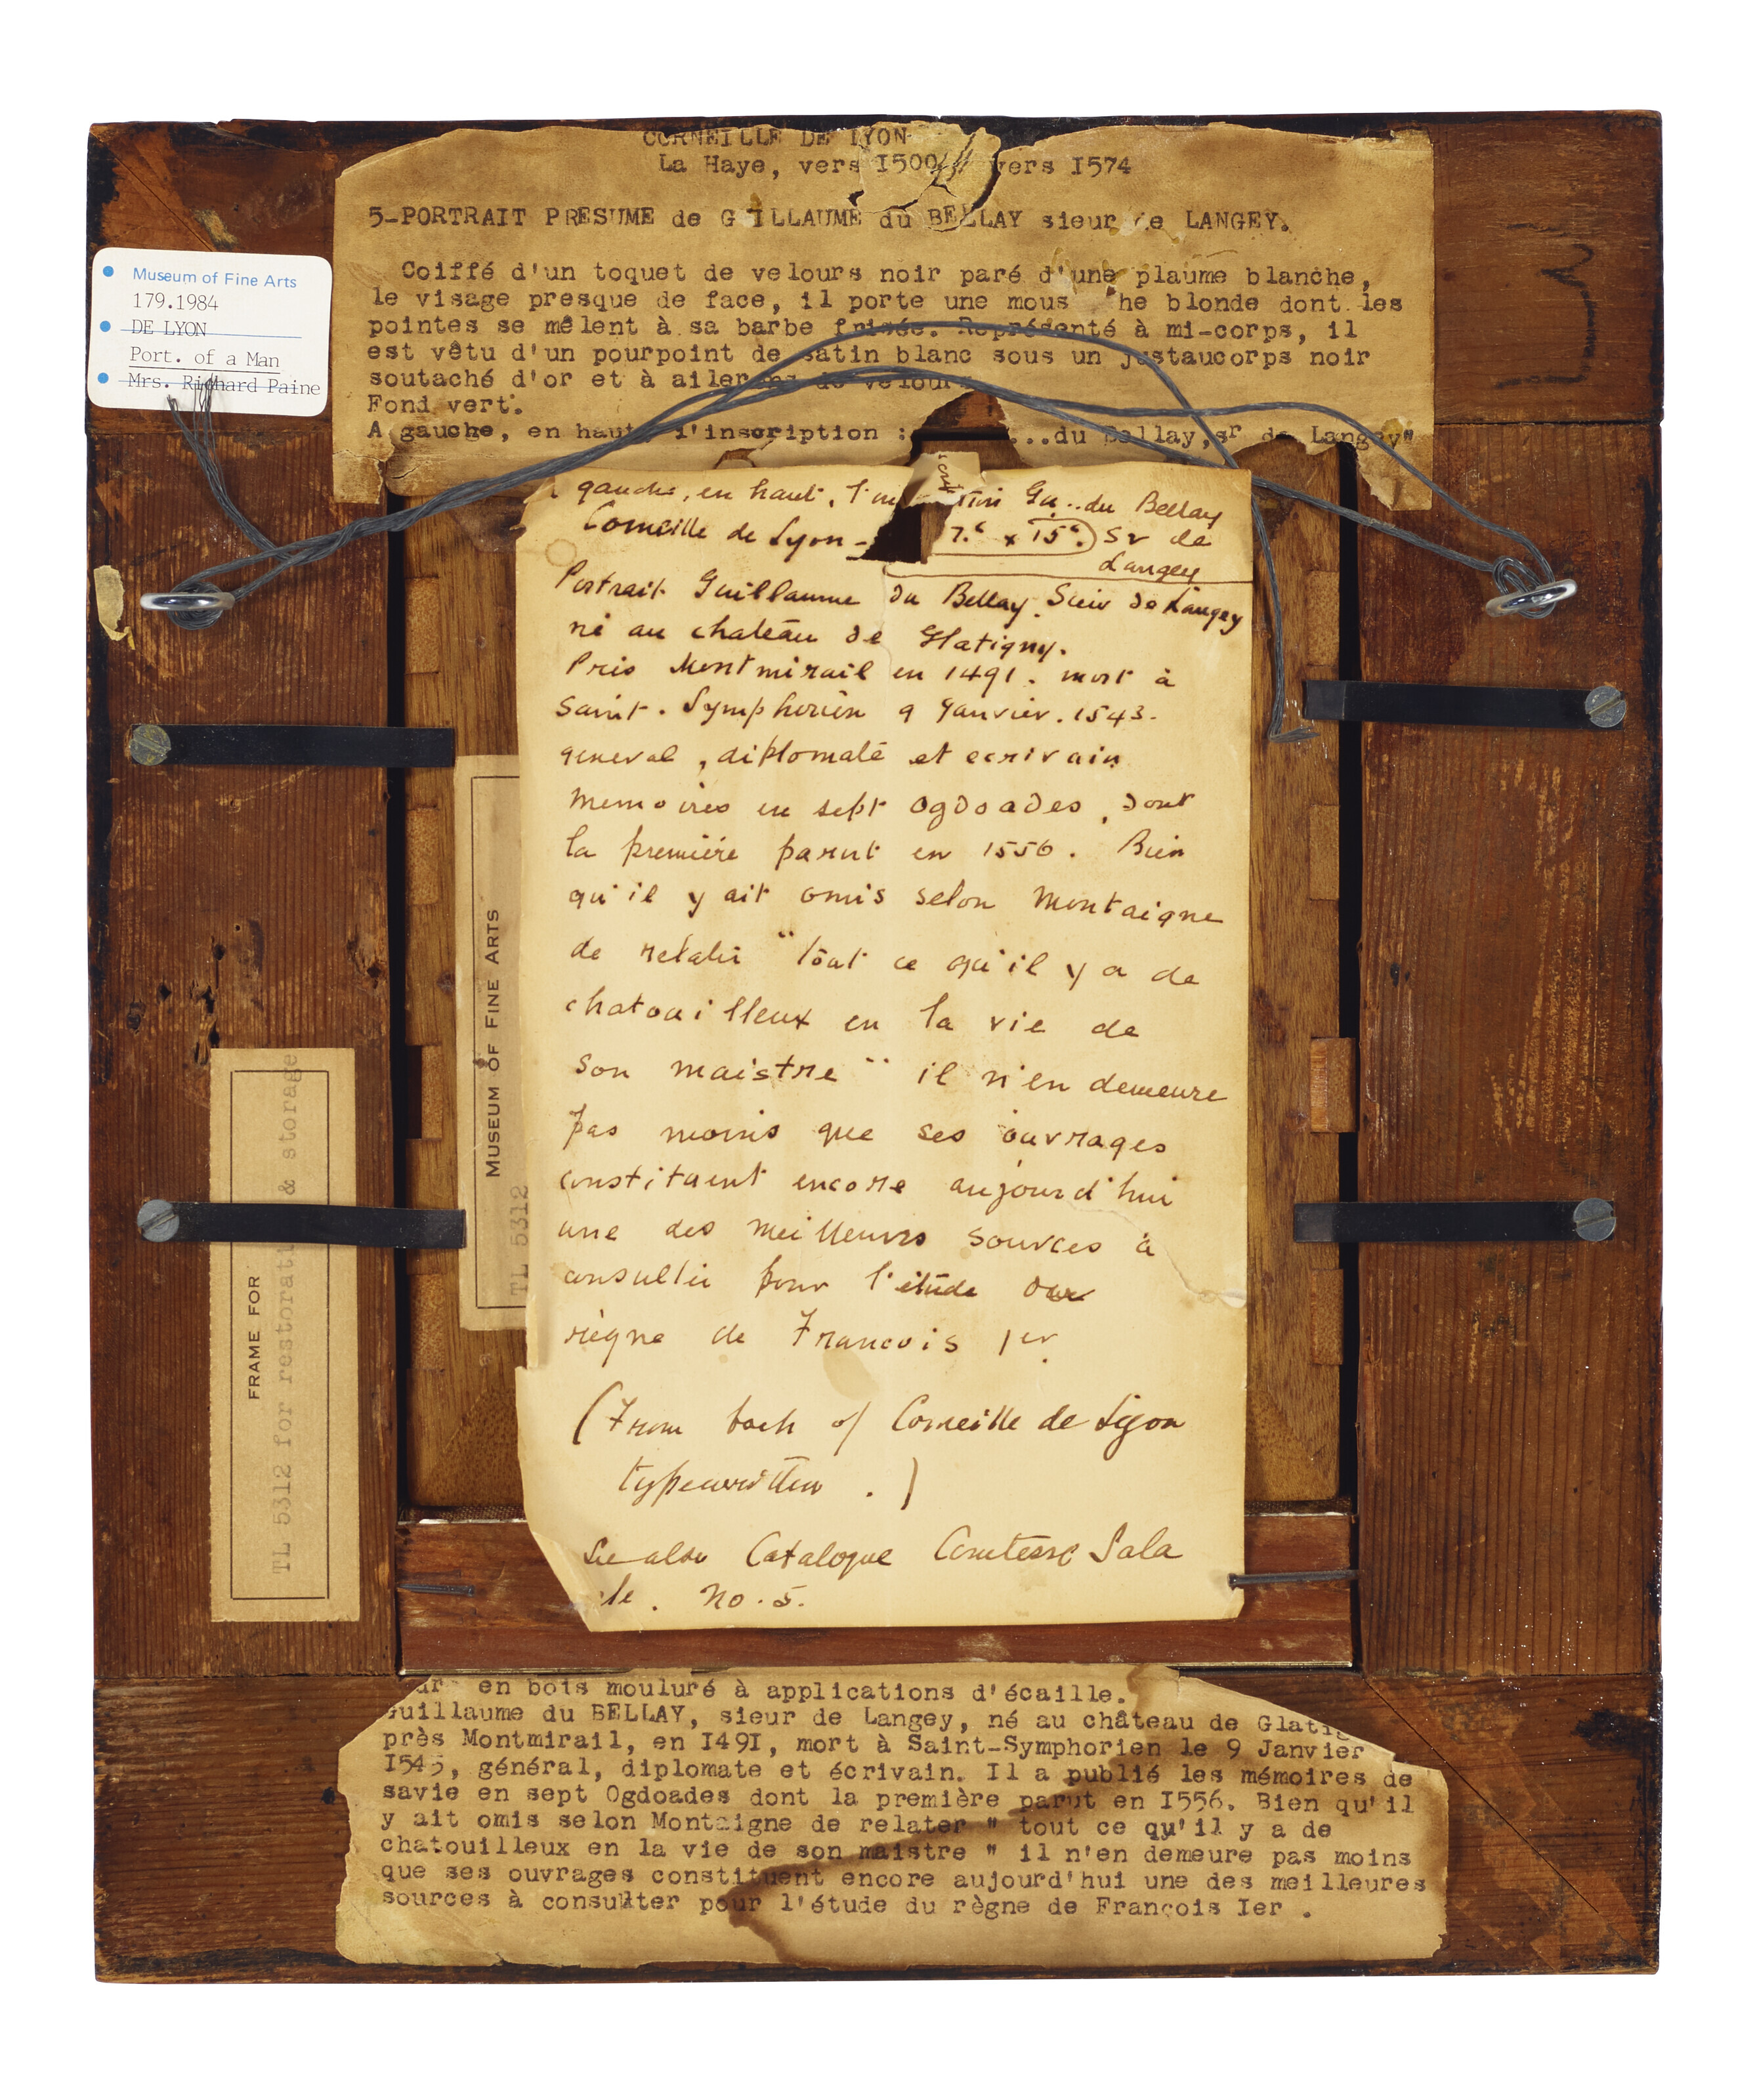 CORNEILLE DE LYON
La Haye, vers I500 vers I574
5-PORTRAIT PRESUME de G ILLAUME du BELLAY sieur de LANGEY.
Coiffé d'un toquet de velours noir paré d'une plaume blanche,
le visage presque de face, il porte une mous he blonde dont les
pointes se mêlent à sa barbe frisée. Représenté à mi-corps, il
est vêtu d'un pourpoint de satin blanc sous un justaucorps noir
soutaché d'or et à ailerons de velours
Fond vert.
A gauche, en haut, l'inscription : ...du Bellay, sr de Langey"
Museum of Fine Arts
179.1984
DE LYON
Port. of a Man
Mrs. Richard Paine
gauche, en haut, l'in tion Gu...du Bellay
Corneille de Lyon - 7.6 x 15 6. Sr de
Langey
Portrait Guillaume du Bellay Sieur de Langey
né au chateau de Glatigny.
Pris Montmirail en 1491. mort à
Saint. Symphorien 9 Janvier. 1543.
general, diplomate et ecrivain
Memoires en sept Ogdoades, dont
la première parut en 1556. Bien
qu'il y ait omis selon Montaigne
de relater "tout ce qu'il y a de
chatouilleux en la vie de
son maistre" il n'en demeure
pas moins que ses ouvrages
constituent encore aujourd'hui
une des meilleures sources à
consulter pour l'étude du
règne de Francois 1er.
(From back of Corneille de Lyon
typewritten.)
See also Catalogue Comtesse Sala
No. 5.
MUSEUM OF FINE ARTS
TL 5312
FRAME FOR
TL 5312 for restorati & storage
en bois mouluré à applications d'écaille.
Guillaume du BELLAY, sieur de Langey, né au château de Glatig
près Montmirail, en I49I, mort à Saint-Symphorien le 9 Janvier
I543, général, diplomate et écrivain. Il a publié les mémoires de
savie en sept Ogdoades dont la première parut en I556. Bien qu'il
y ait omis selon Montaigne de relater " tout ce qu'il y a de
chatouilleux en la vie de son maistre " il n'en demeure pas moins
que ses ouvrages constituent encore aujourd'hui une des meilleures
sources à consulter pour l'étude du règne de François Ier .